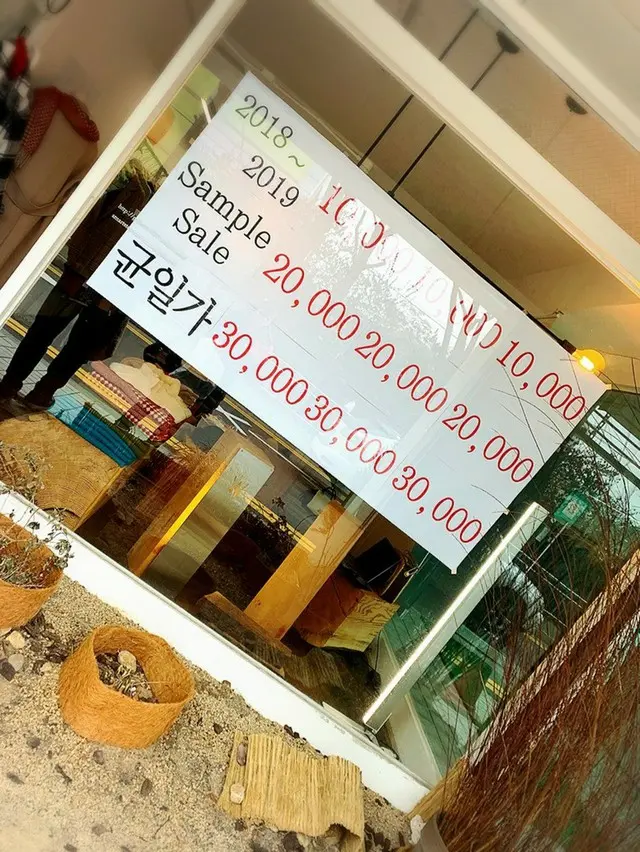 2018 ~
2019
Sample
Sale
균일가
10,000 10,000 10,000
20,000 20,000 20,000
30,000 30,000 30,000